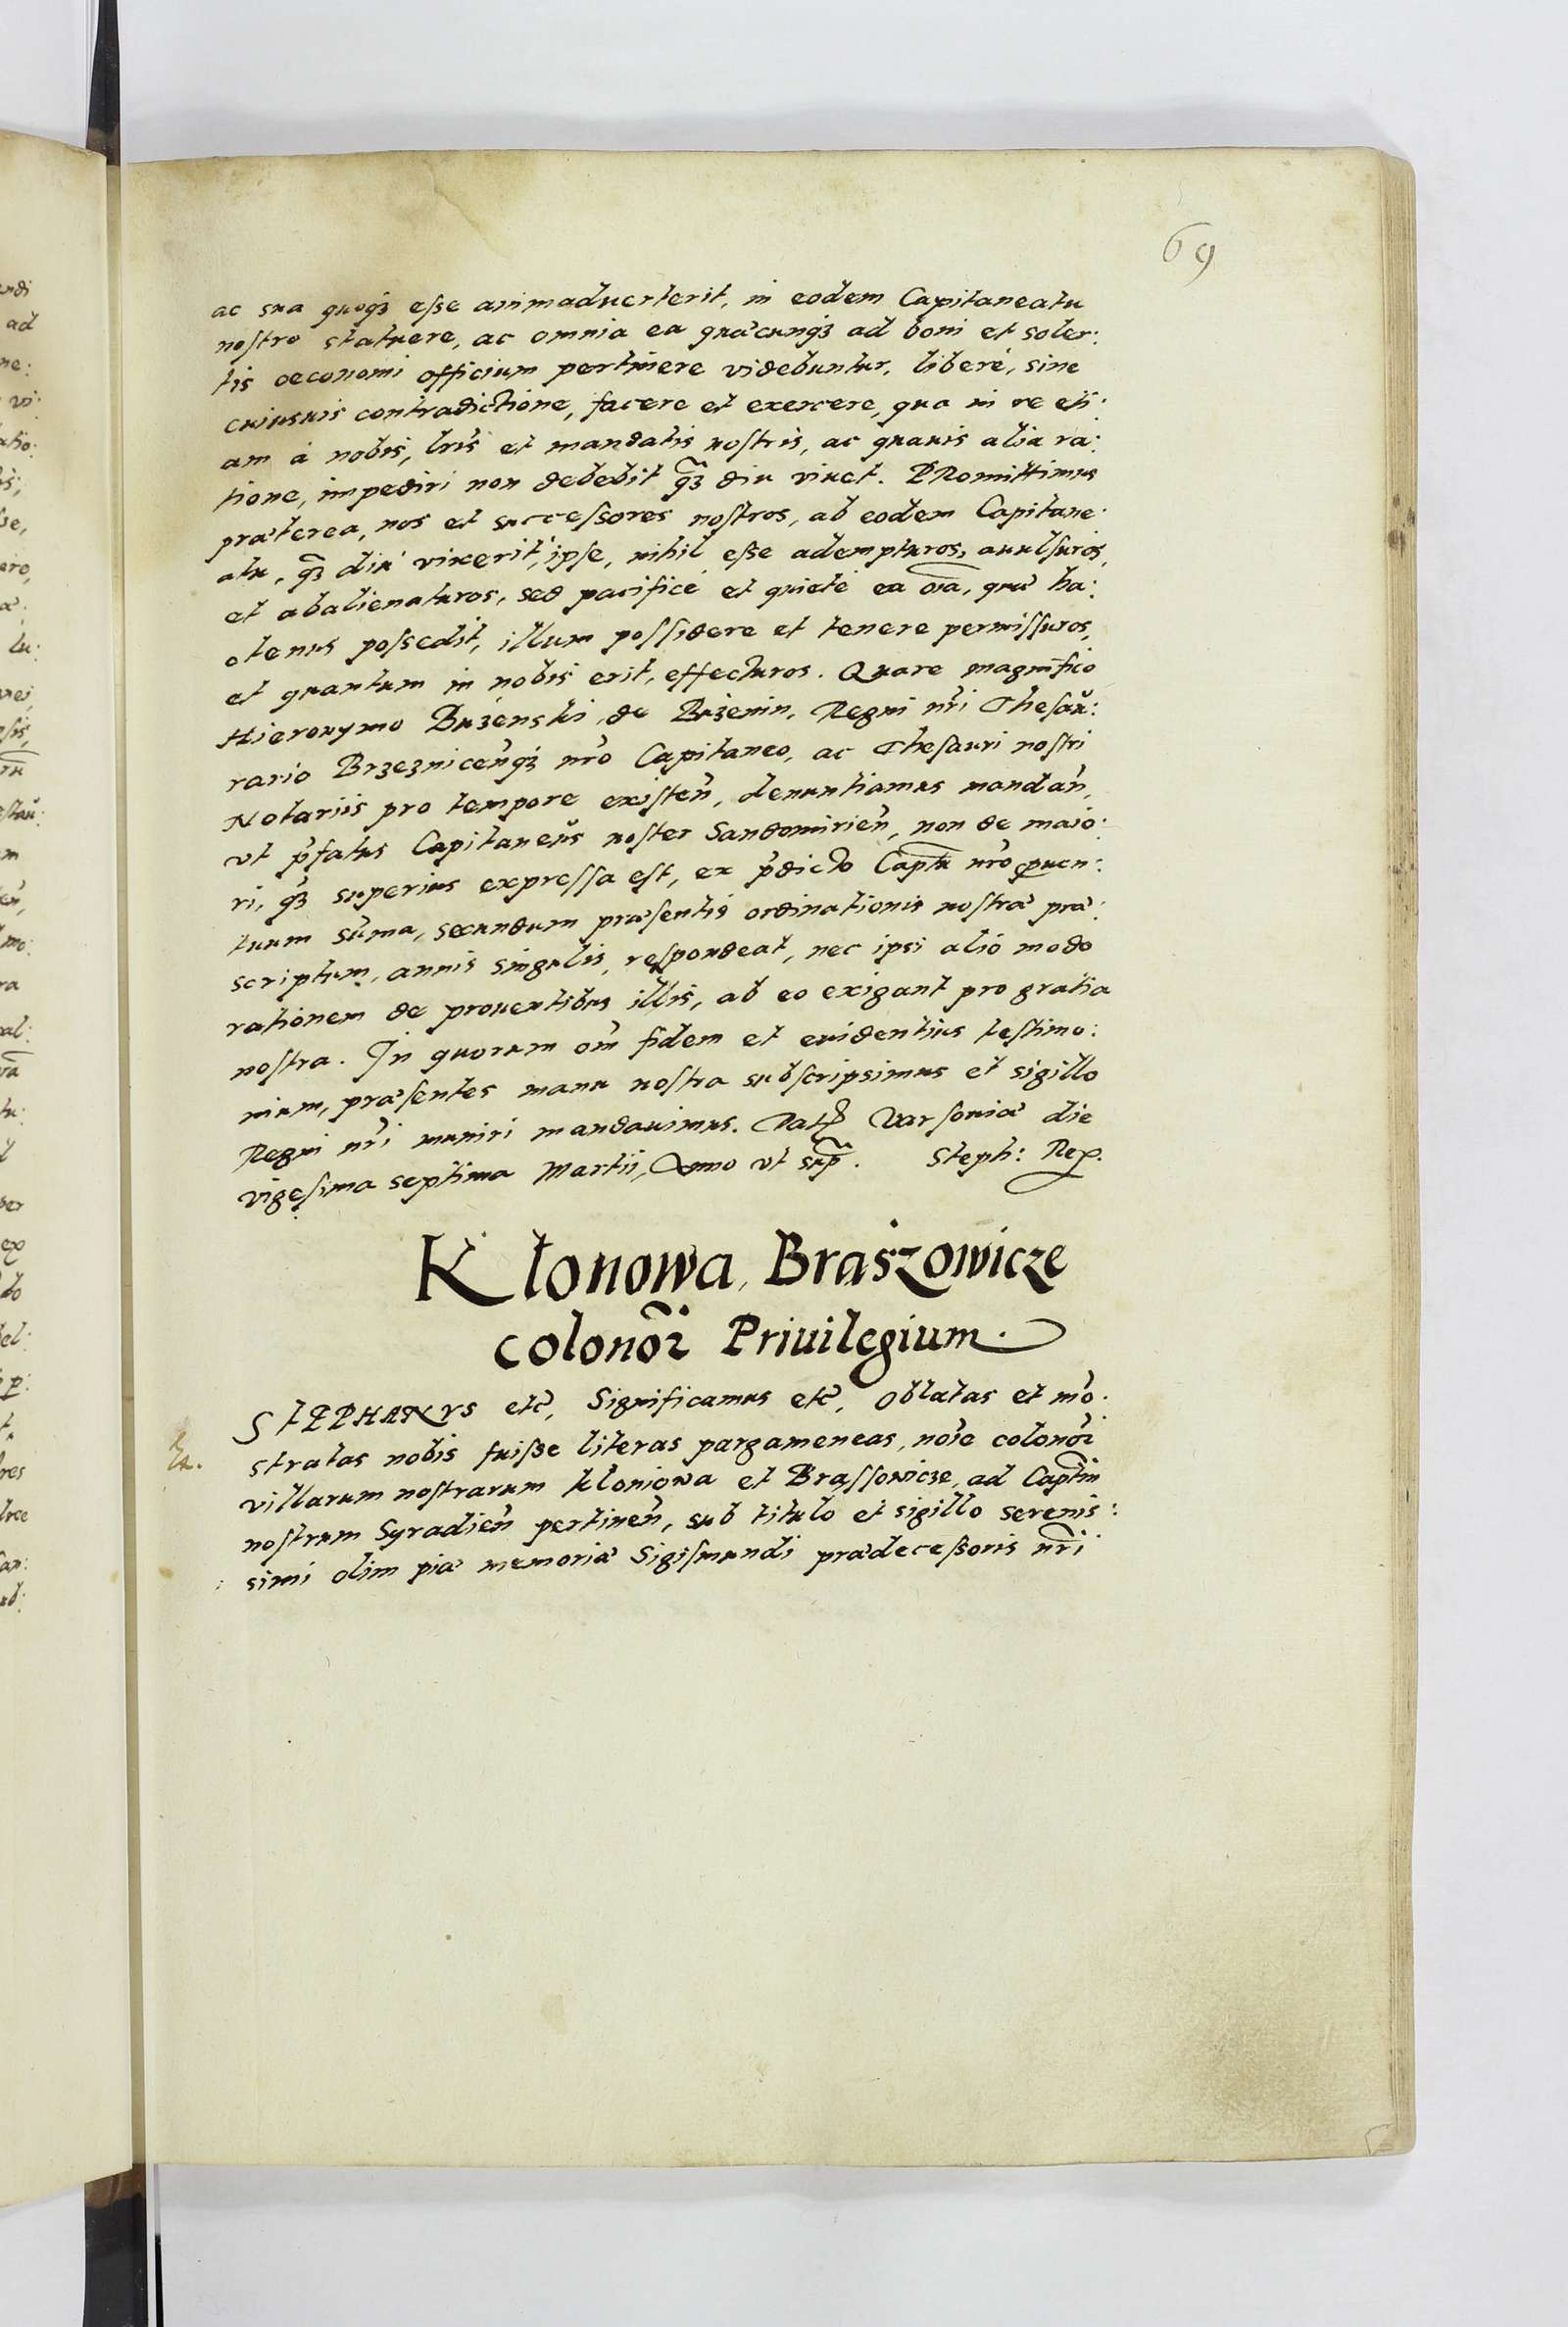 69
ac sua quoq3 eſse animaduerterit, in eodem Capitaneatu
nostro statuere, ac omnia ea quæcunq3 ad boni et soler:
tis oeconomi officium pertinere videbuntur, liberè, sine
cuiusuis contradictione, facere et exercere, qua in re eti:
am à nobis, lris et mandatis nostris, ac quauis alia ra:
tione, impediri non debebit q̃3 diu viuet. PRomittimus
præterea, nos et succeſsores nostros, ab eodem Capitane:
atu, q̃3 diu vixerit ipse, nihil eſse adempturos, auulſuros,
et abalienaturos, sed pacificè et quietè ea oĩa, quæ ha:
ctenus poſsedit, illum poſsidere et tenere permiſsuros,
et quantum in nobis erit, effecturos. Quare magnifico
Hieronymo Buzenski, de Buzenin, Regni nr̃i Theſau:
rario Brzeznicen̄q3 nr̃o Capitaneo, ac Theſauri nostri
Notariis pro tempore existen̄, denuntiamus mandan̄,
vt p̄fatus Capitaneus noster Sandomirien̄, non de maio:
ri, q̃3 superius expreſsa est, ex p̄dicto Captu nr̃o prouen:
tuum sum̄a, secundum præſentis ordinationis nostræ præ:
scriptum, annis singulis, respondeat, nec ipsi alio modo
rationem de prouentibus illis, ab eo exigant pro gratia
nostra. In quorum om̄ fidem et euidentius testimo:
nium, præſentes manu nostra subscripsimus et sigillo
Regni nr̃i muniri mandauimus. Dat Varſouiæ die
vigeſima septima Martii, Anno vt sup̃. Steph: Rex.
Kłonowa, Braszowicze
colonor̃ Priuilegium.
STEPHANVS etc̃, Significamus etc̃, Oblatas et mo:
stratas nobis fuiſse literas pargameneas, noĩe colonor̃
villarum nostrarum kloniowa et Braſsowicze, ad Captum
nostrum Syradien̄ pertinen̄, sub titulo et sigillo serenis:
simi olim piæ memoriæ Sigiſmundi prædeceſsoris nr̃i